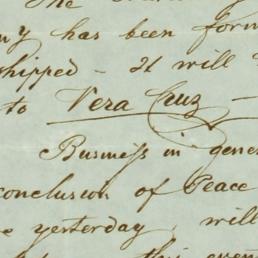 The
ny has been form
shipped - It will
to Vera Cruz -
Business in gene
conclusion of Peace
e yesterday, will
this even